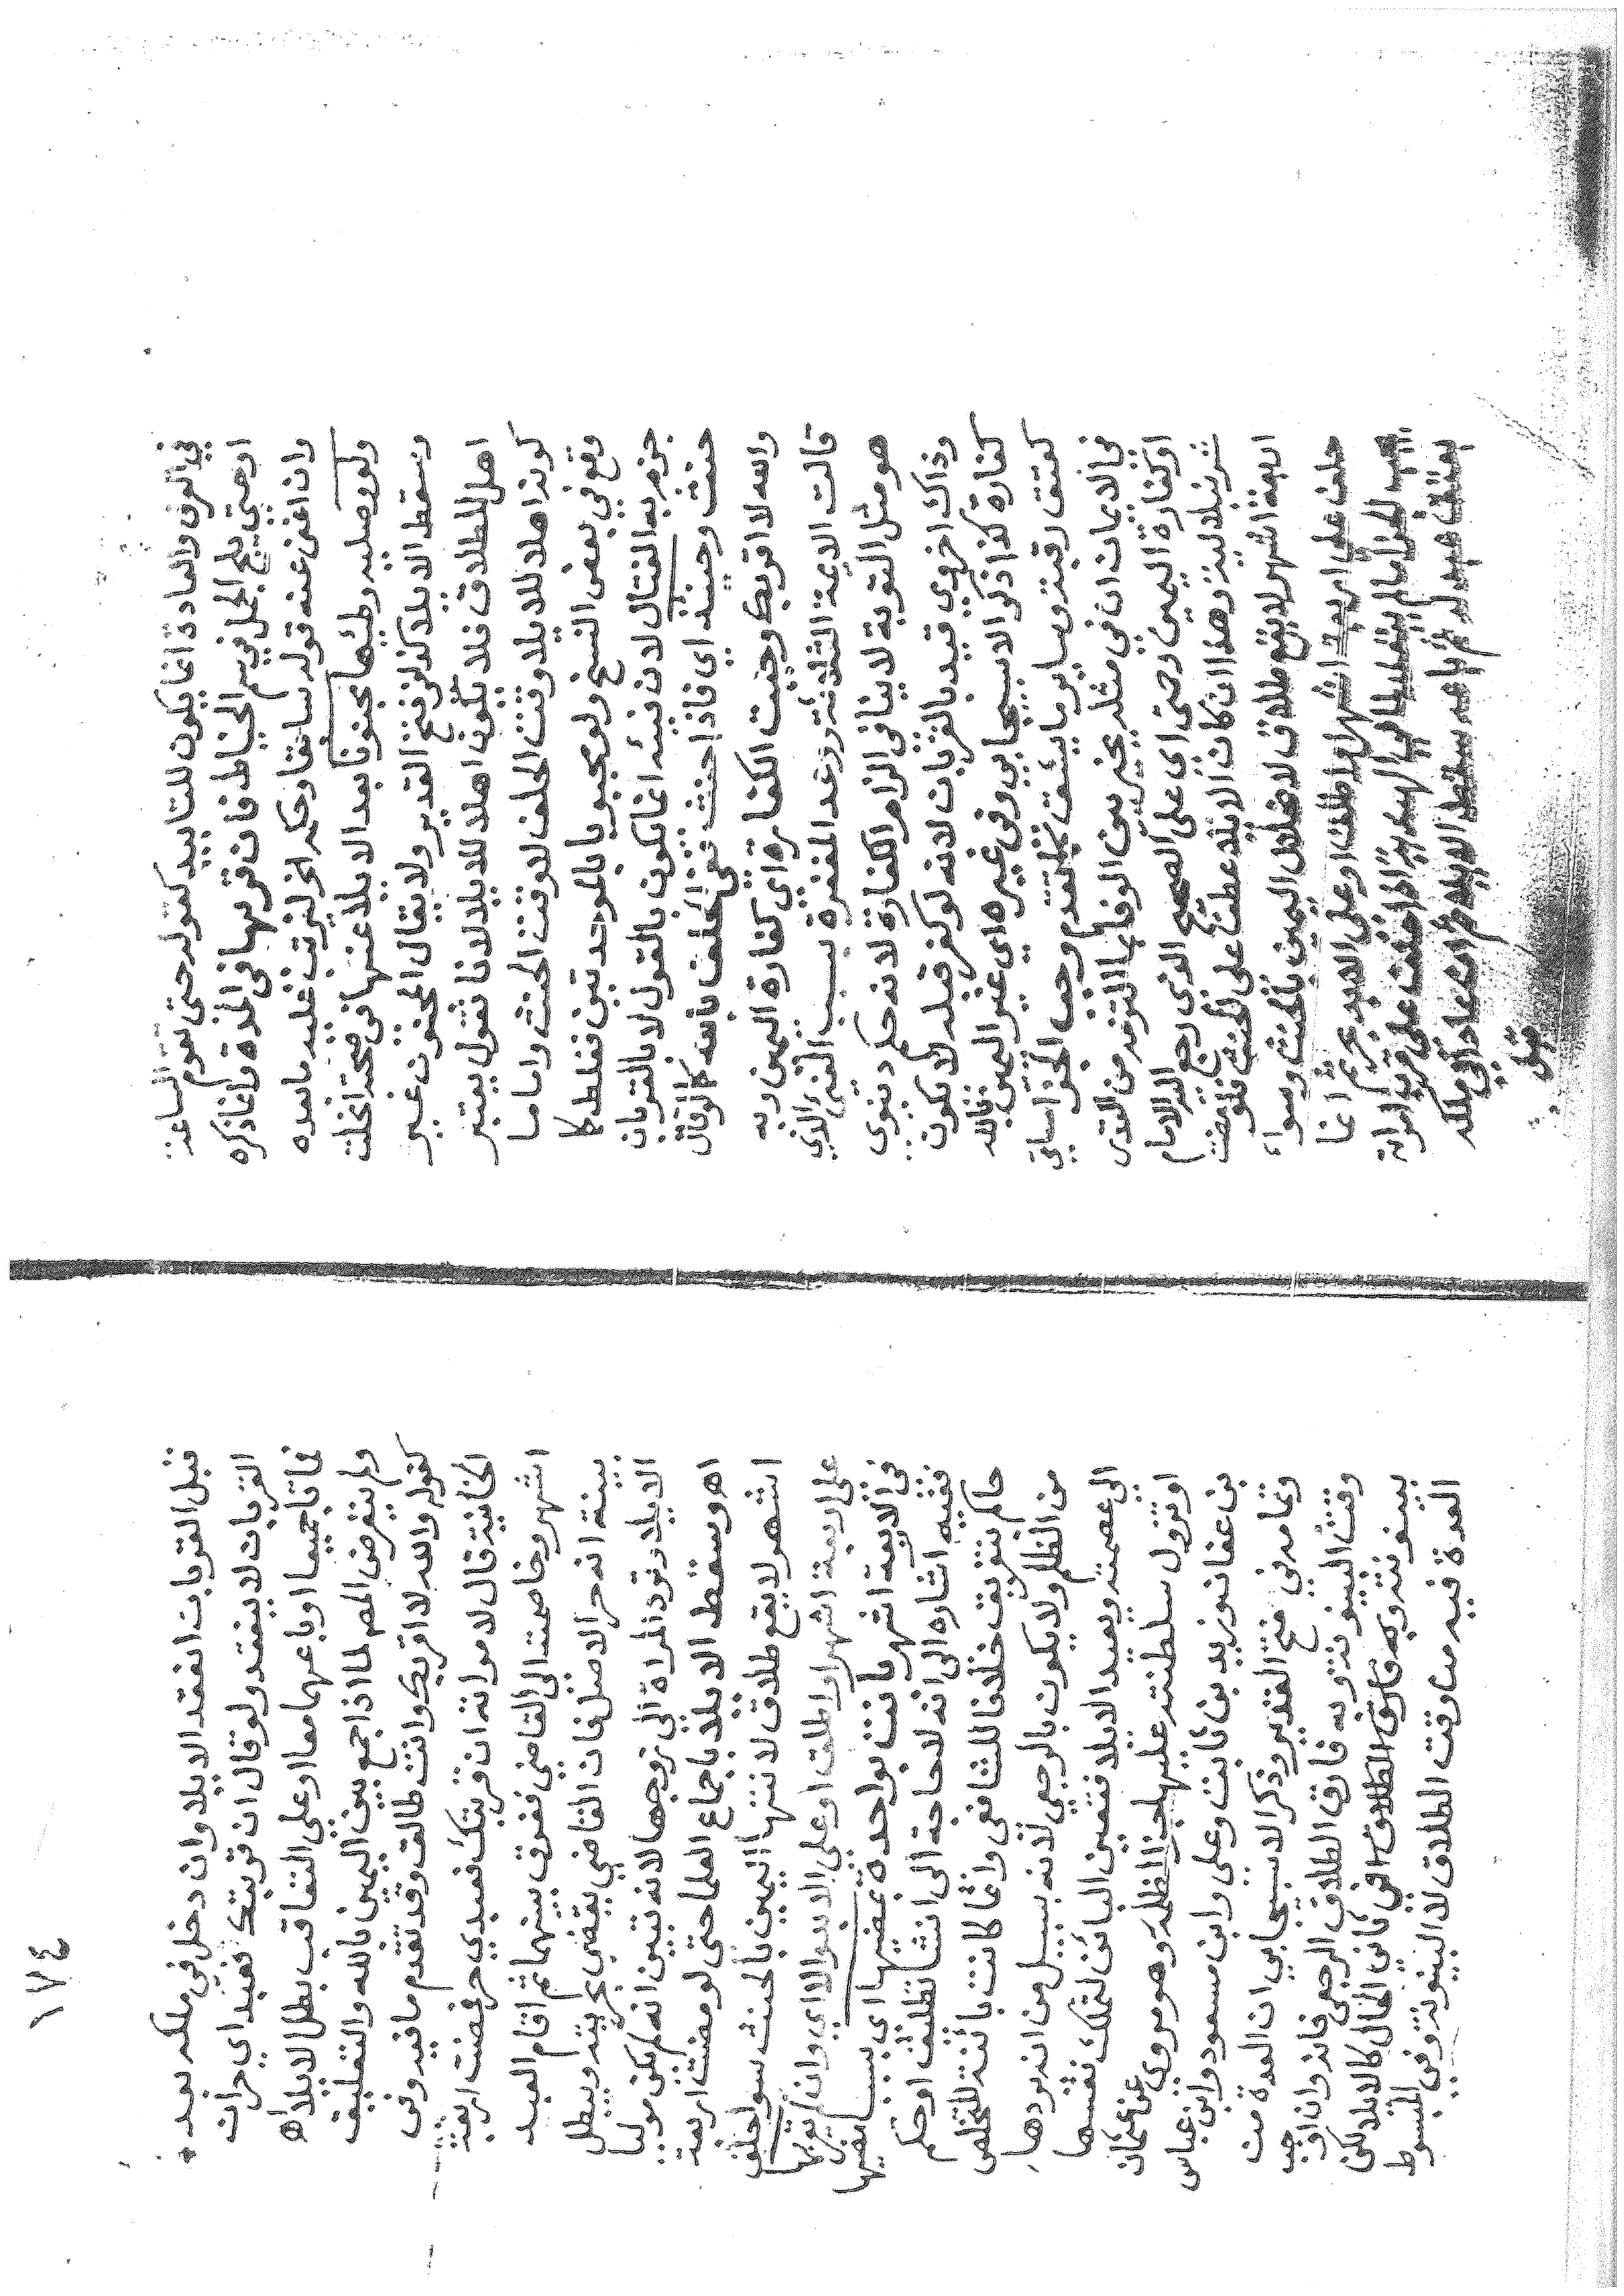 في العرف والعادة انما يكون للتابيد كقوله حتى تقوم الساعة
اوحتى يلج الجمل في سم الخياط فان قربها في المدة وانما ذكره
وان اغنى عنه قوله سابقا وحكمه الخ ليرتب عليه ما بعده
ولو وصليه وطئها مجنونا بعد الايلاء عنها في صحته انحلت
وسقط الايلاء كذا في فتح القدير ولا يقال المجنون غير
اهل للطلاق فلا يكون اهلا للايلاء لانا نقول يعتبر
كونه اهلا للايلاء وقت الحلف لا وقت الحنث واما ما
وقع في بعض النسخ ولو مجبوبا بالموحدتين فغلط كما
جزم به الفتال لان فيئه انما يكون بالقول لا بالقربان
حنث وحينئذ اي فاذا حنث ففي الحلف بالله كما لو قال
والله لا اقربك وجبت الكفارة اي كفارة اليمين وبه
قالت الايمة الثلاثة ووعد المغفرة بسبب الفيء الذي
هو مثل التوبة لا ينافي الزام الكفارة لانه حكم دنيوي
وذاك اخروي قيد بالقربان لانه لو كفر قبله لا يكون
كفارة كذا ذكره الاسبيجابي وفي غيره اي غير اليمين بالله
كعتق رقبة وصيام يوما يشق مما تقدم وجب الجزا سياتي
في الايمان ان في مثله يخير بين الوفاء بما التزمه من النذر
او كفارة اليمين وحتى اي على الصحيح الذي رجع اليه الامام
شرنبلاليه وهذا ان كان الايلاء عطف على الحنث فلو مضت
اربعة اشهر لا يقع طلاق لانحلال اليمين بالحنث وسواء
حلف على اربعة اشهر او اطلق او على الابد ثم انما
قبل
قبل القربان انعقد الايلاء وان دخل في ملكه بعد
القربان لا ينعقد ولو قال ان قربتك فعبداي حران
فماتا جميعا او باعهما معا او على التعاقب بطل الايلاء اه
ولم يتعرض المص لما اذا جمع بين اليمين بالله والتعليق
كقوله والله لا اقربك وانت طالق وقد تقدم ما فيه وفي
الخانية قال لامراته ان قربتك فعبدي حر فمضت اربعة
اشهر وخاصمته الى القاضي ففرق بينهما ثم اقام العبد
بينة انه حر الاصل فان القاضي يقضي بحريته ويبطل
الايلاء وترد المراة الى زوجها لانه تبين انه لم يكن موليا
اه وسقط الايلاء باجماع العلما حتى لو مضت اربعة
اشهر لا يقع طلاق لانتها اليمين بالحنث سواء حلف
على اربعة اشهر او اطلق او على الابد والا اي وان لم يقربها
في الاربعة اشهر بانت بواحدة بمضيها اي بسبب مضيها
ففيه اشارة الى انه لا حاجة الى انشا تطليق او حكم
حاكم بتفريق خلافا للشافعي وانما كانت بائنة للتخلص
من الظلم ولا يكون بالرجعي لانه بسبيل من ان يردها
الى عصمته ويعيد الايلاء فتعين البائن لتملك نفسها
او تزول سلطنته عليها جزا لظلمه وهو مروي عن عثمان
بن عفان وزيد بن ثابت وعلي وابن مسعود وابن عباس
وتمامه في فتح القدير وذكر الاسبيجابي ان العدة من
وقت البينونة وبه فارق الطلاق الرجعي فانه وان اوجب
بينونة في ثاني الحال كالايلاء لكن المبسوط
العدة فيه من وقت الطلاق لا البينونة وفي
١٧٤